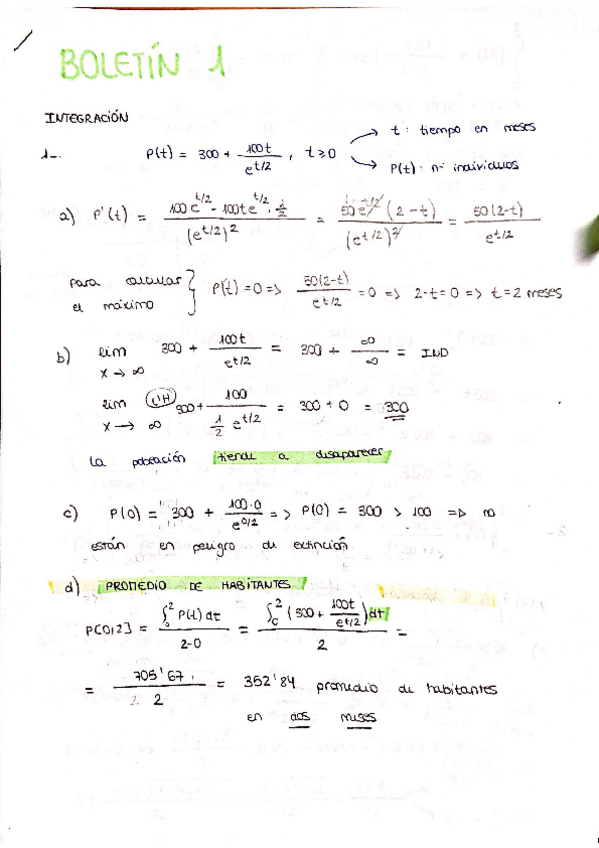 BOLETÍN 1
INTEGRACIÓN
1-. P(t) = 300 + 100t / e^(t/2) , t ≥ 0 → t: tiempo en meses
→ P(t): nº individuos
a) P'(t) = (100e^(t/2) - 100te^(t/2) · 1/2) / (e^(t/2))^2 = 50e^(t/2) (2-t) / (e^(t/2))^2 = 50(2-t) / e^(t/2)
para calcular el máximo } P(t) = 0 => 50(2-t) / e^(t/2) = 0 => 2-t = 0 => t = 2 meses
b) lim x→∞ 300 + 100t / e^(t/2) = 300 + ∞/∞ = IND
lim x→∞ (L'H) 300 + 100 / (1/2 e^(t/2)) = 300 + 0 = 300
La población tiende a desaparecer
c) P(0) = 300 + 100·0 / e^(0/2) => P(0) = 300 > 100 => no
están en peligro de extinción
d) PROMEDIO DE HABITANTES
P[0,2] = ∫₀² P(t) dt / 2-0 = ∫₀² (300 + 100t / e^(t/2)) dt / 2 =
= 705'67 / 2 = 352'84 promedio de habitantes
en dos meses